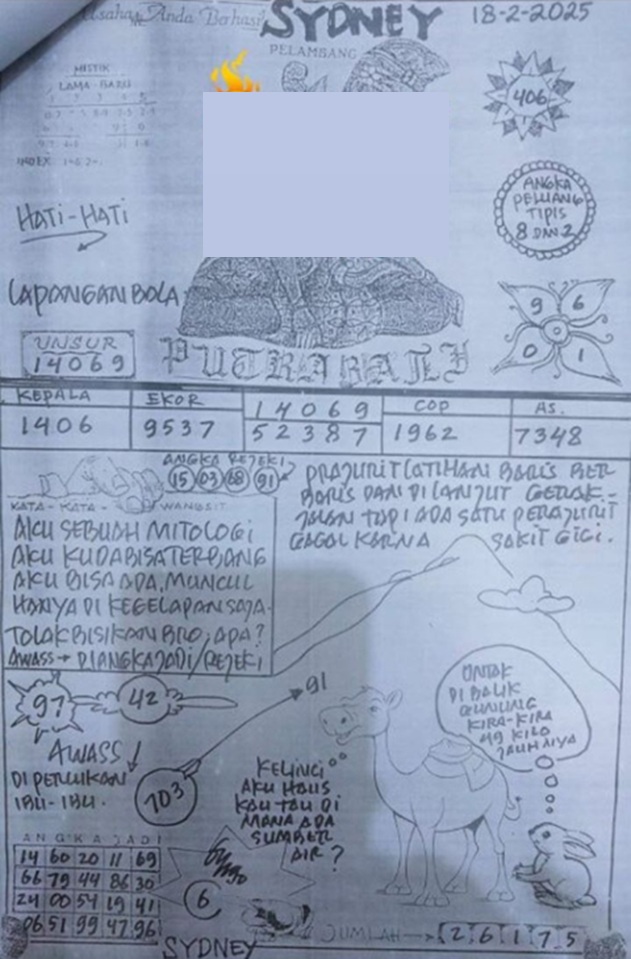 Usaha Anda Berhasil
SYDNEY
18-2-2025
PELAMBANG
MISTIK
LAMA - BARU
406
HATI-HATI
ANGKA
PELUANG
TIPIS
8 DAN 2
LAPANGAN BOLA
9 6
0 1
UNSUR
14069
PUTRA BALI
KEPALA EKOR 14069 COP AS.
1406 9537 52387 1962 7348
ANGKA REJEKI
15 03 68 91
PRAJURIT LATIHAN BARIS BER
BARIS DAN DI LANJUT GERAK -
JALAN TAPI ADA SATU PERAJURIT
GAGAL KARNA SAKIT GIGI.
KATA - KATA - WANGSIT
AKU SEBUAH MITOLOGI
AKU KUDA BISA TERBANG
AKU BISA ADA, MUNCUL
HANYA DI KEGELAPAN SAJA.
TOLAK BISIKAN BRO, APA?
AWASS → DIANGKA JADI/REJEKI
97
42
91
ONTAK
DI BALIK
GUNUNG
KIRA-KIRA
49 KILO
JAUHNYA
AWASS
DI PERLUKAN
IBU-IBU.
703
KELINCI
AKU HAUS
KAU TAU DI
MANA ADA
SUMBER
AIR?
ANGKA JADI
14 60 20 11 69
66 79 44 86 30
24 00 54 19 41
06 51 99 47 96
6
JUMLAH → 26175
SYDNEY